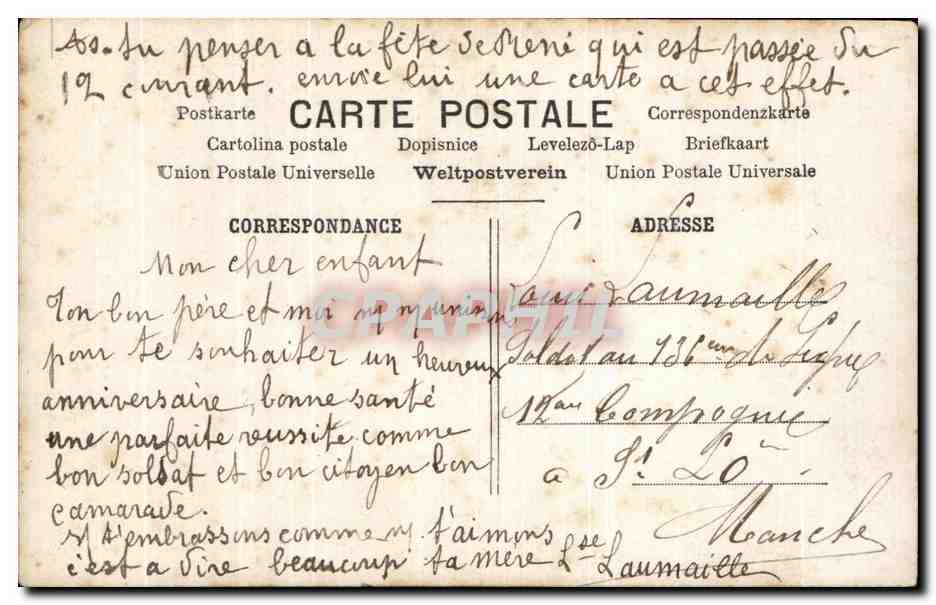 As-tu penser a la fête de René qui est passée du
12 courant. envoie lui une carte a cet effet.
Postkarte CARTE POSTALE Correspondenzkarte
Cartolina postale Dopisnice Levelezõ-Lap Briefkaart
Union Postale Universelle Weltpostverein Union Postale Universale
CORRESPONDANCE
Mon cher enfant
Ton bon père et moi ns ns unissons
pour te souhaiter un heureux
anniversaire, bonne santé
une parfaite reussite comme
bon soldat et bon citoyen bon
camarade.
ns t'embrassons comme ns t'aimons
c'est a dire beaucoup ta mère Lse Laumaille
ADRESSE
Louis Laumaille
Soldat au 136eme de Ligne
12eme Compagnie
a St Lô
Manche
CPAPHIL